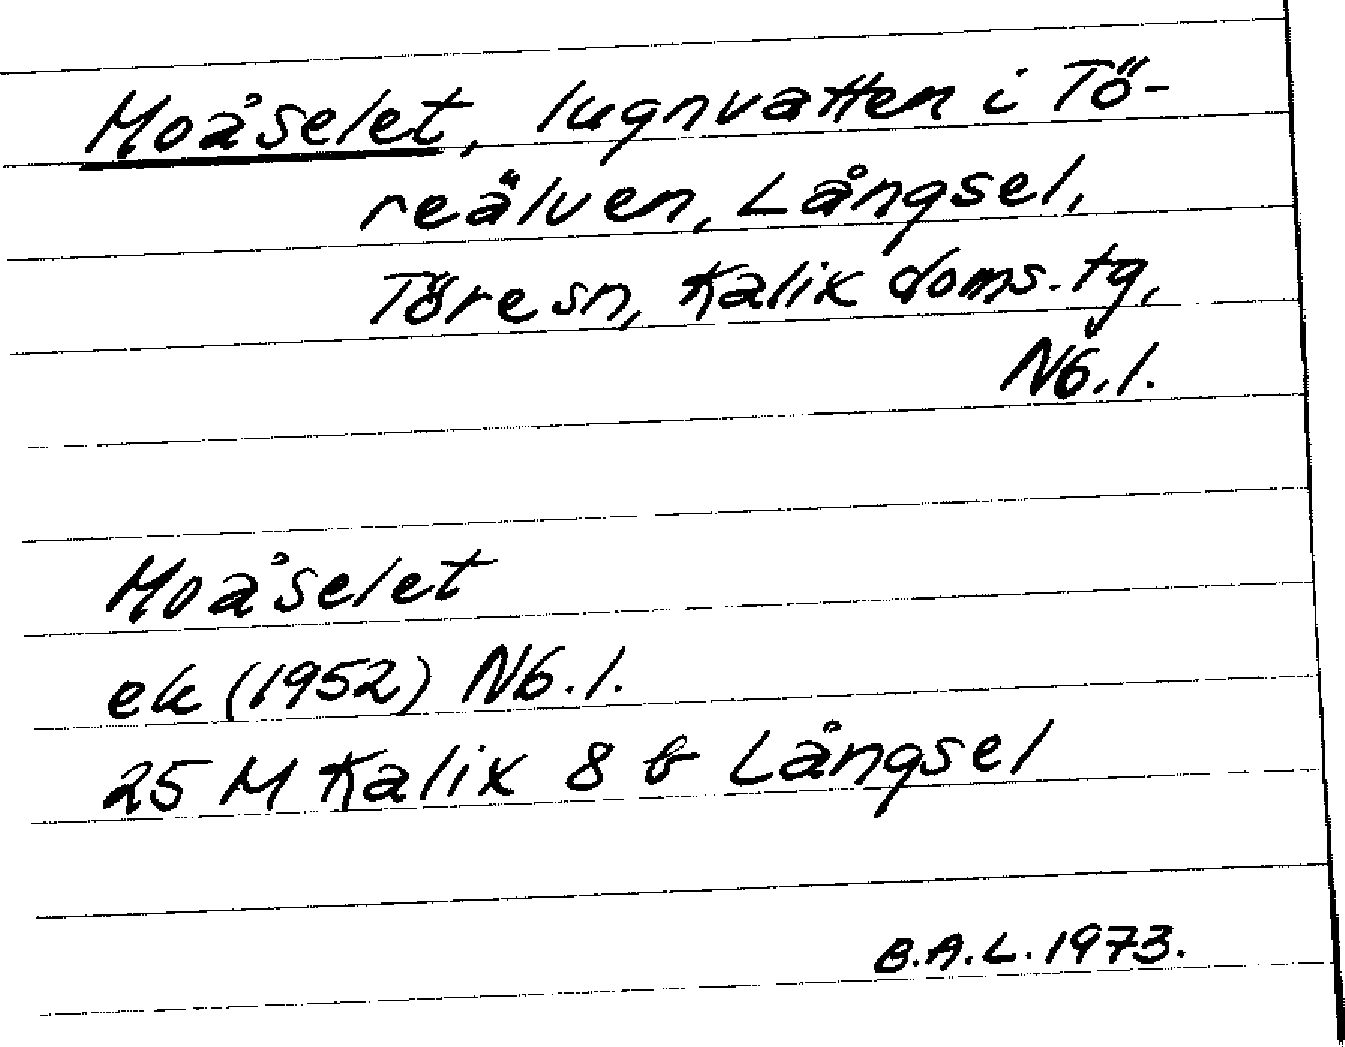 Moåselet, lugnvatten i Tö-
reälven, Långsel,
Töre sn, Kalix doms. tg,
Nb. l.
Moåselet
ek (1952) Nb. l.
25 M Kalix 8 b Långsel
B.A.L. 1973.